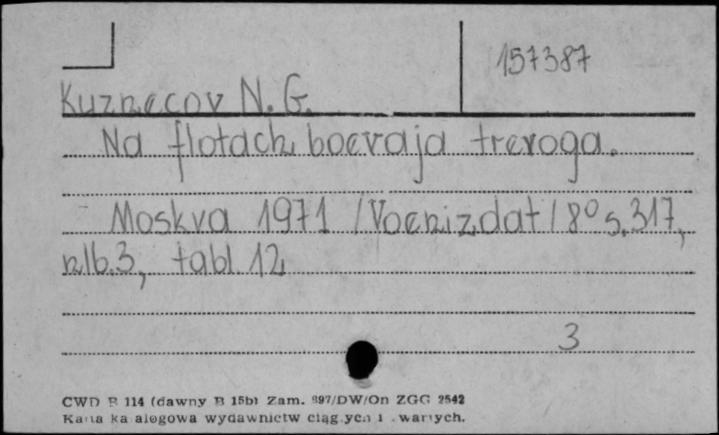 157387
Kuznecov N. G.
Na flotach boevaja trevoga.
Moskva 1971 /Voenizdat/ 8° s.317,
nlb.3, tabl. 12
3
CWD B 114 (dawny B 15b) Zam. 897/DW/On ZGG 2542
wydawnictw